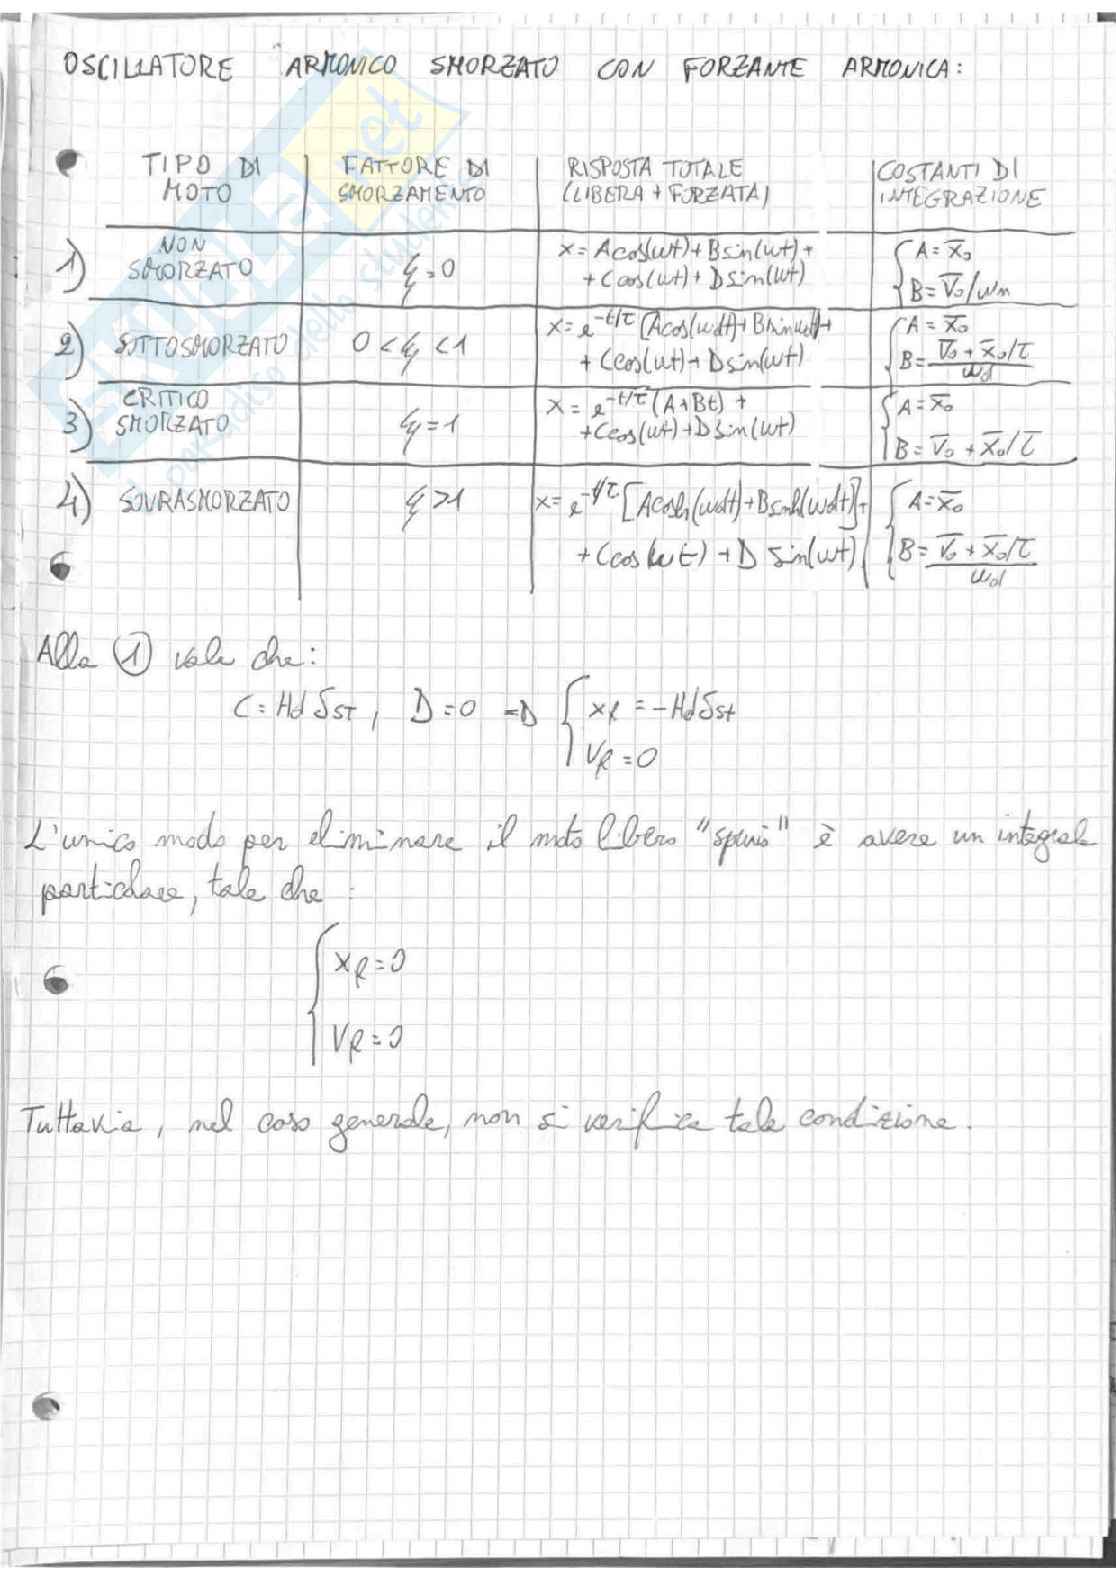 OSCILLATORE ARMONICO SMORZATO CON FORZANTE ARMONICA:
TIPO DI MOTO | FATTORE DI SMORZAMENTO | RISPOSTA TOTALE (LIBERA + FORZATA) | COSTANTI DI INTEGRAZIONE
1) NON SMORZATO | ξ=0 | x= Acos(ωt)+Bsin(ωt)+ +Ccos(ωt)+Dsin(ωt) | { A=x̅₀ B=V̅₀/ωn
2) SOTTOSMORZATO | 0<ξ<1 | x= e^-t/τ [Acos(ωdt)+Bsin(ωdt)]+ +Ccos(ωt)+Dsin(ωt) | { A=x̅₀ B=(V̅₀+x̅₀/τ)/ωd
3) CRITICO SMORZATO | ξ=1 | x= e^-t/τ (A+Bt) + +Ccos(ωt)+Dsin(ωt) | { A=x̅₀ B=V̅₀+x̅₀/τ
4) SOVRASMORZATO | ξ>1 | x= e^-t/τ [Acosh(ωdt)+Bsinh(ωdt)]+ +Ccos(ωt)+D sin(ωt) | { A=x̅₀ B=(V̅₀+x̅₀/τ)/ωd
Alla ① vale che:
C=Hd δst, D=0 ⇒ { xR=-Hdδst
VR=0
L'unico modo per eliminare il moto libero "spurio" è avere un integrale
particolare, tale che:
{ xR=0
VR=0
Tuttavia, nel caso generale, non si verifica tale condizione.